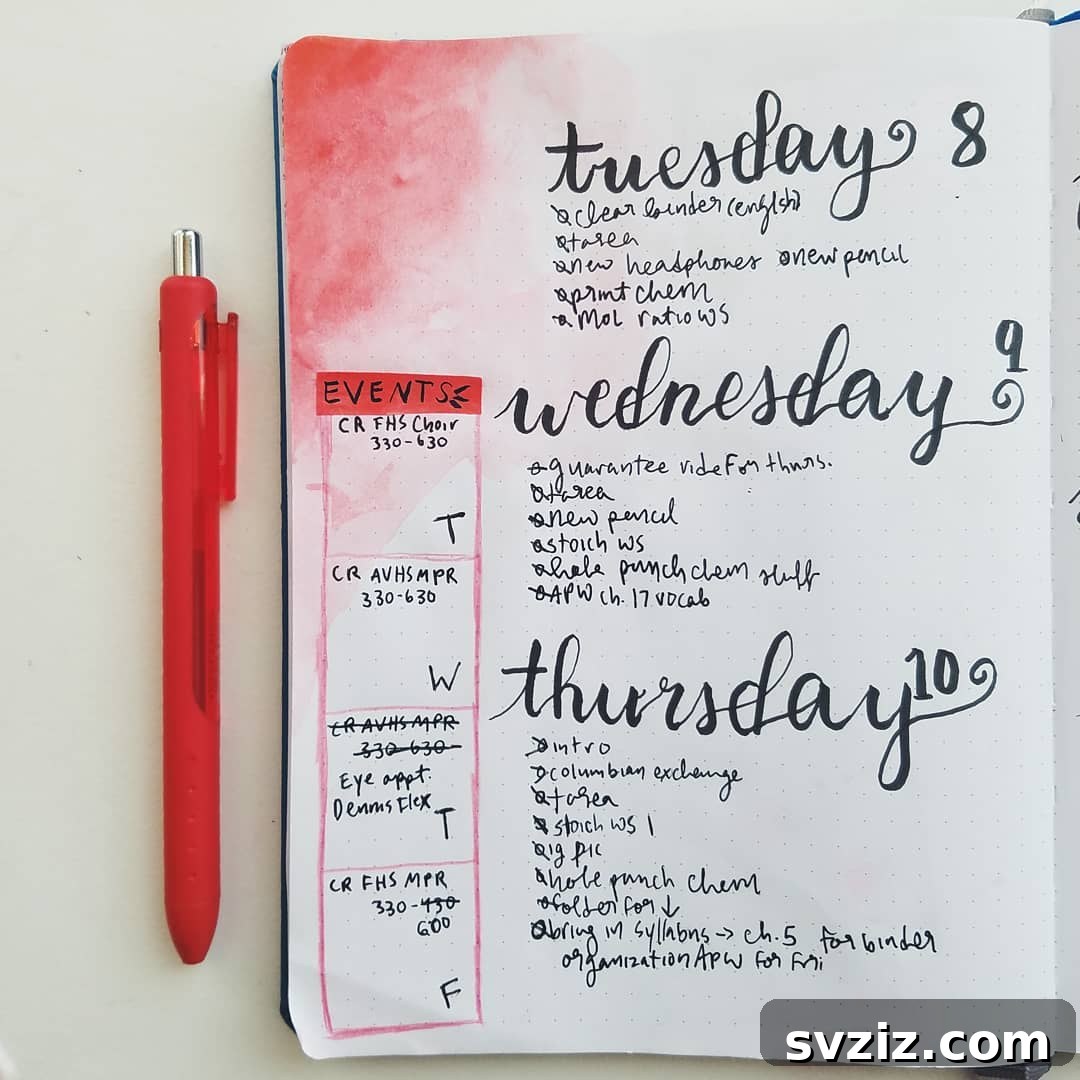 tuesday 8
clear binder (english)
tarea
new headphones new pencil
print chem
Mol ratio WS
EVENTS
CR FHS Choir
330-630
T
CR AVHS MPR
330-630
W
CR AVHS MPR
330-630
Eye appt.
Denms Flex
T
CR FHS MPR
330-430
600
F
wednesday 9
guarantee ride For thurs.
tarea
new pencil
stoich ws
hole punch chem stuff
APW ch. 17 vocab
thursday 10
intro
columbian exchange
tarea
stoich WS 1
ig pic
hole punch chem
folder for ↓
bring in syllabus → ch. 5 for binder
organization APW For Fri
svziz.com